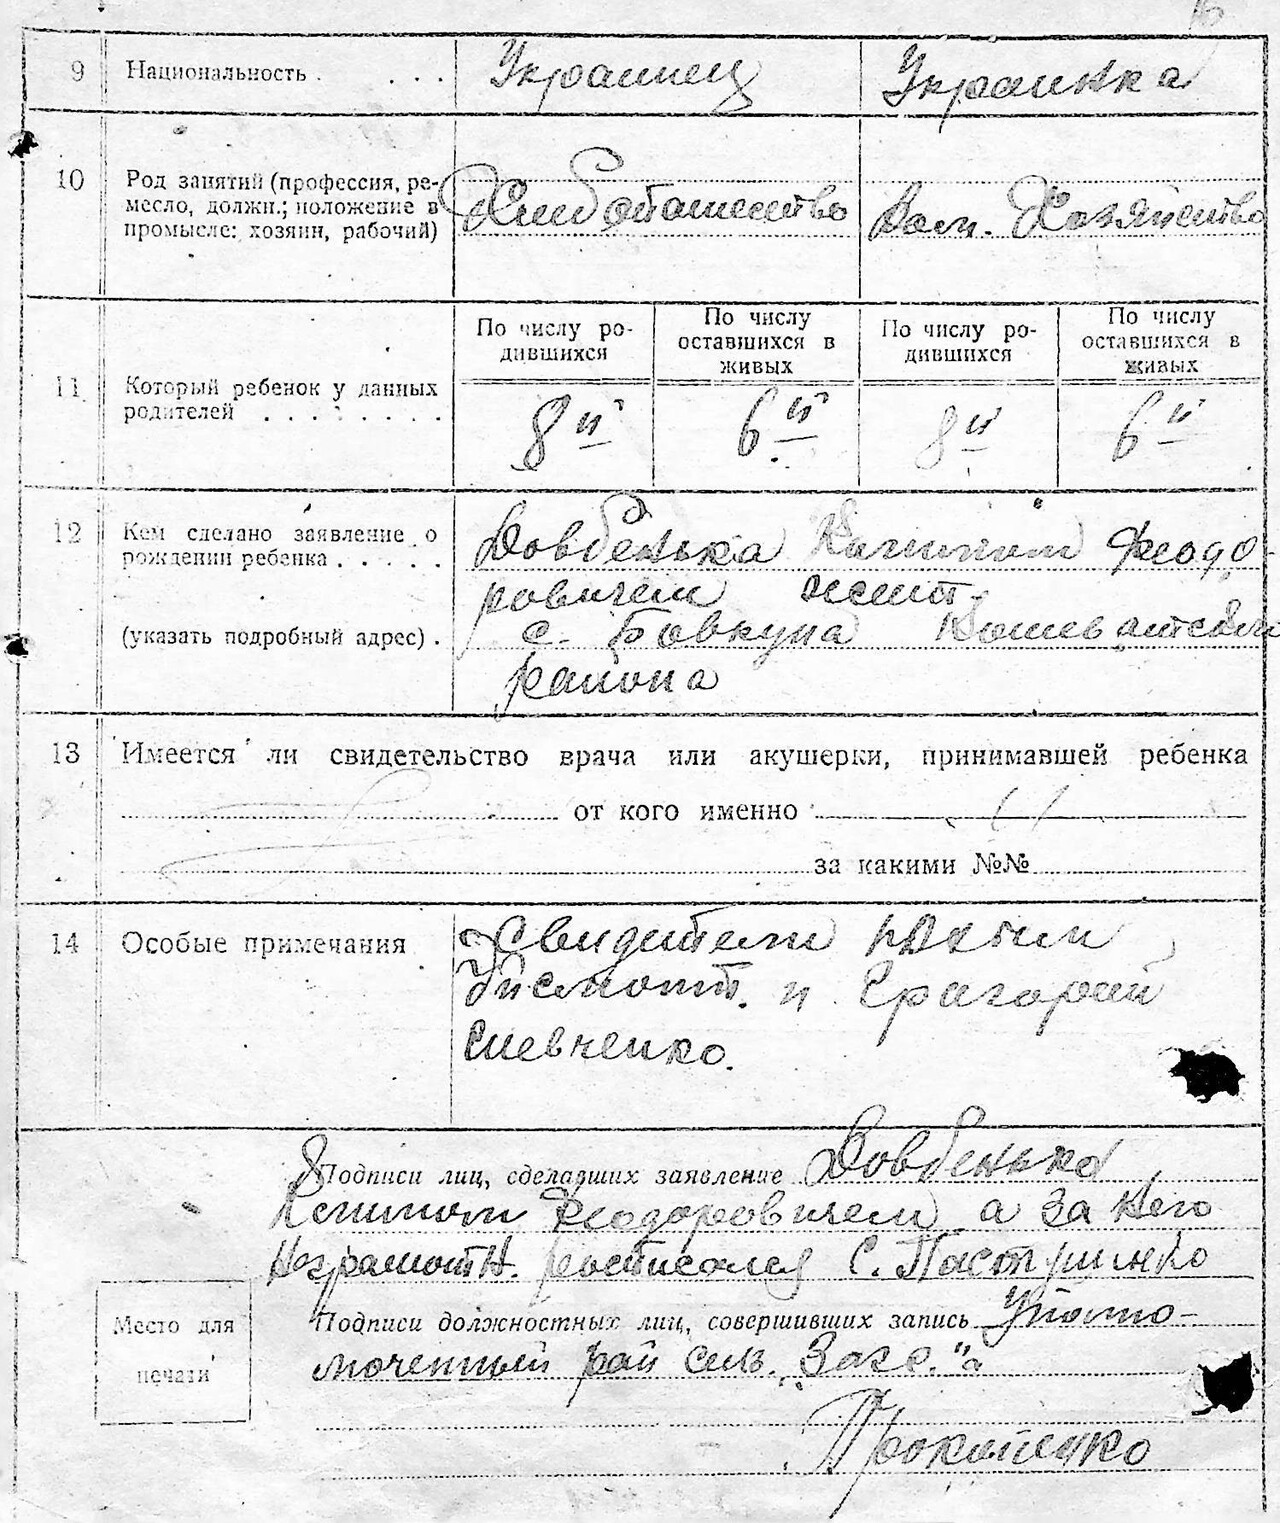 9 Национальность . . . . Украинец Украинка
10 Род занятий (профессия, ре-
месло, должн.; положение в
промысле: хозяин, рабочий)
Хлебопашество Дом. Хозяйство
11 Который ребенок у данных
родителей . . . . . . . .
По числу ро-
дившихся
По числу
оставшихся в
живых
По числу ро-
дившихся
По числу
оставшихся в
живых
8й 6й 8й 6й
12 Кем сделано заявление о
рождении ребенка . . . . .
(указать подробный адрес) .
Довбенька Феодо-
ровичем жит.
с. Бовкуна
района
13 Имеется ли свидетельство врача или акушерки, принимавшей ребенка
от кого именно
за какими №№
14 Особые примечания
Свидетели
и Григорий
Шевченко.
Подписи лиц, сделавших заявление Довбенька
Феодоровичем а за него
неграмотн. росписался С.
Место для
печати
Подписи должностных лиц, совершивших запись Уполно-
моченный рай сель. „Загс."а
Прокопенко